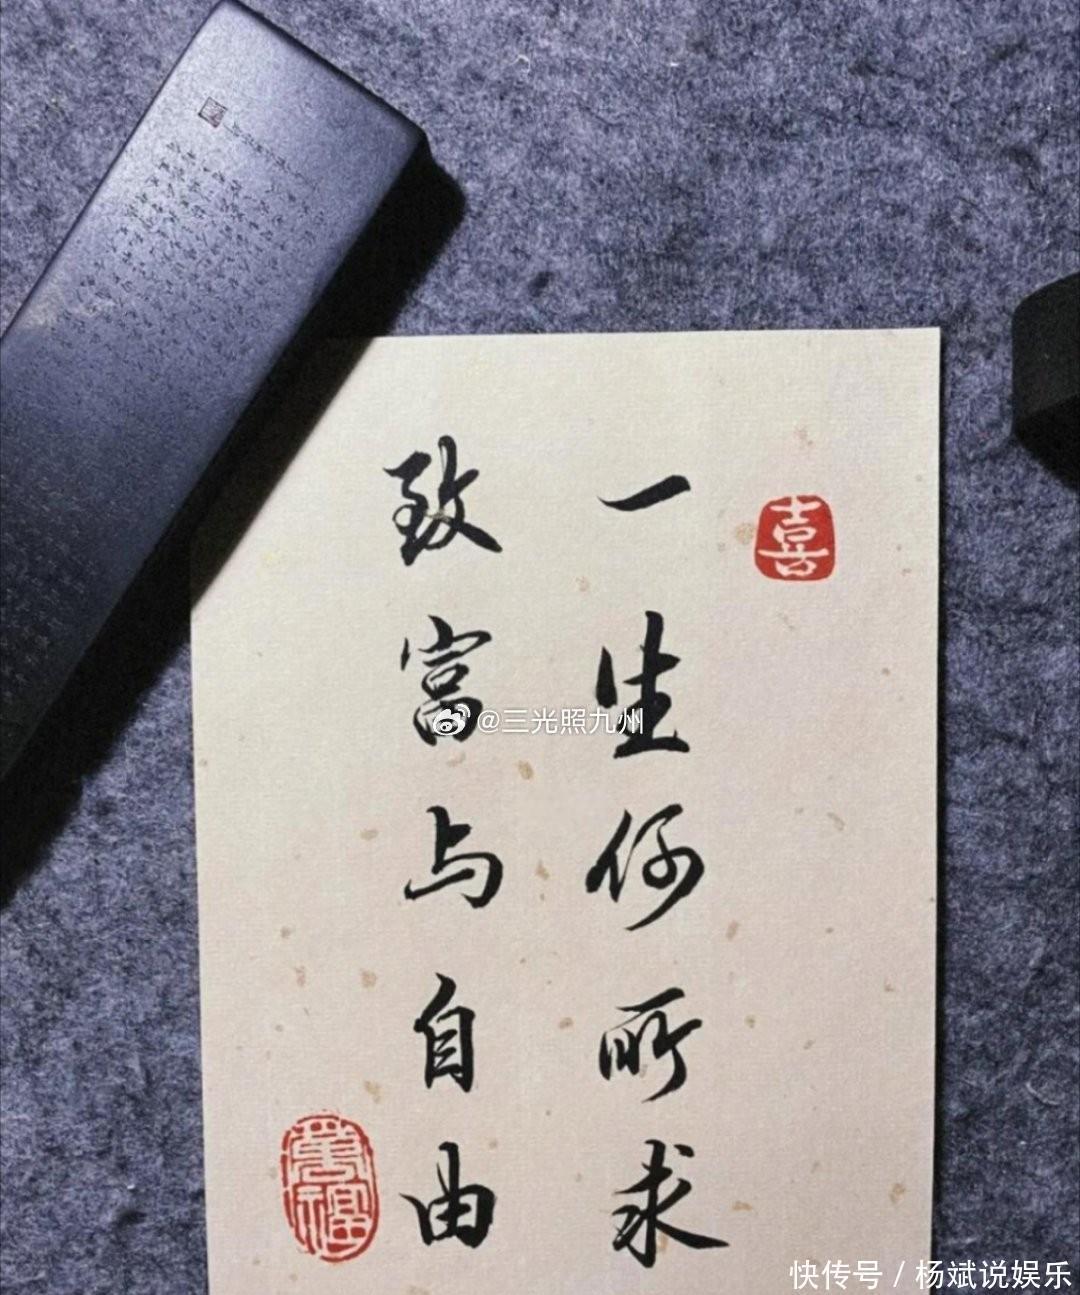 喜
一生仔所求
致富与自由
萬福
@三光照九州
快传号 / 杨斌说娱乐